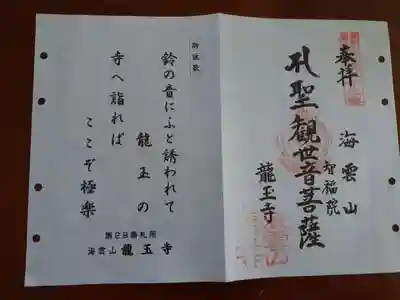 奉拝
海雲山
智福院
聖観世音菩薩
龍玉寺
御詠歌
鈴の音にふと誘われて
龍玉の
寺へ詣れば
ここぞ極楽
番札所
海雲山 龍玉寺